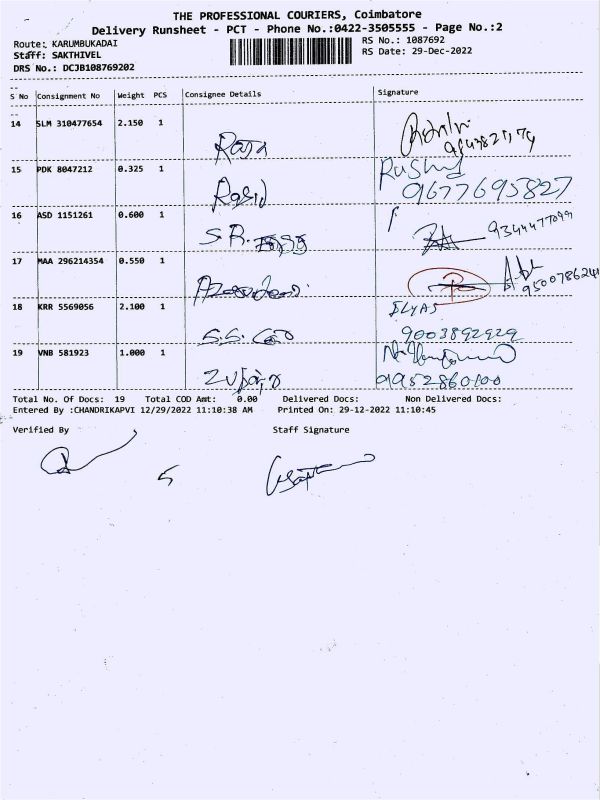 THE PROFESSIONAL COURIERS, Coimbatore
Delivery Runsheet - PCT - Phone No.:0422-3505555 - Page No.:2
Route: KARUMBUKADAI
RS No.: 1087692
Staff: SAKTHIVEL
RS Date: 29-Dec-2022
DRS No.: DCJB108769202
S No Consignment No Weight PCS Consignee Details Signature
14 SLM 310477654 2.150 1
Raja
15 PDK 8047212 0.325 1 Rushd
Rasid 9677695827
16 ASD 1151261 0.600 1
S.R. 9344477099
17 MAA 296214354 0.550 1
18 KRR 5569056 2.100 1 ILYAS
S.S. 9003892929
19 VNB 581923 1.000 1
9952860100
Total No. Of Docs: 19 Total COD Amt: 0.00 Delivered Docs: Non Delivered Docs:
Entered By :CHANDRIKAPVI 12/29/2022 11:10:38 AM Printed On: 29-12-2022 11:10:45
Verified By Staff Signature